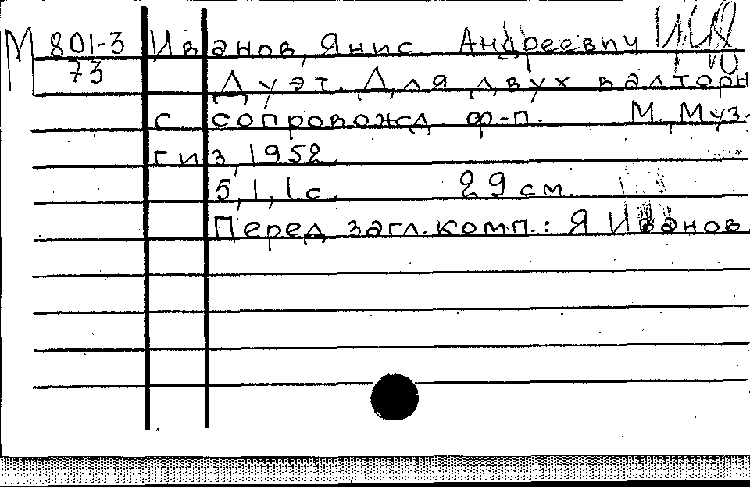 М 801-3 Иванов, Янис Андреевич
73 Дуэт. Для двух валторн
с сопровожд. ф-п. М., Муз-
гиз, 1952.
5,1,1 с. 29 см.
Перед загл. комп.: Я Иванов.